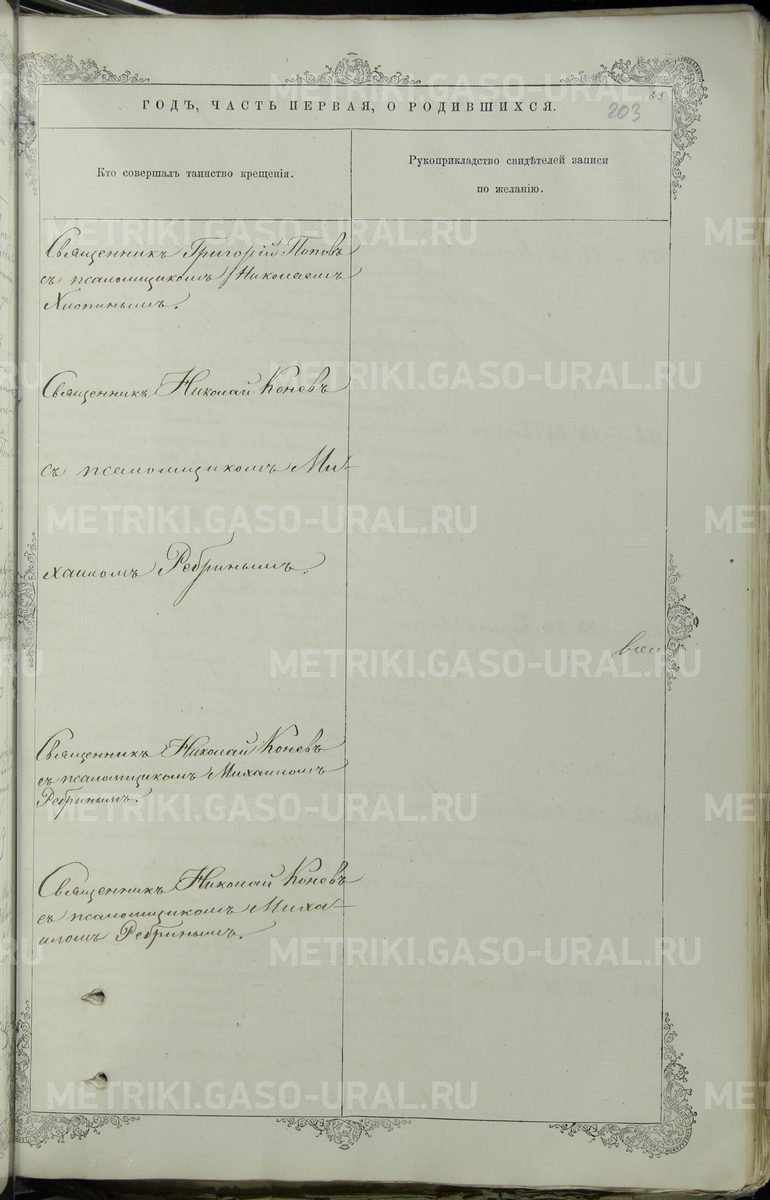 203
ГОДЪ, ЧАСТЬ ПЕРВАЯ, О РОДИВШИХСЯ.
Кто совершалъ таинство крещенія.
Рукоприкладство свидѣтелей записи
по желанію.
Священникъ Григорій Поповъ
съ псаломщикомъ Николаемъ
Священникъ Николай Коневъ
съ псаломщикомъ Ми-
хаиломъ Ребринымъ.
Священникъ Николай Коневъ
съ псаломщикомъ Михаиломъ
Ребринымъ.
Священникъ Николай Коневъ
съ псаломщикомъ Миха-
иломъ Ребринымъ.
METRIKI.GASO-URAL.RU